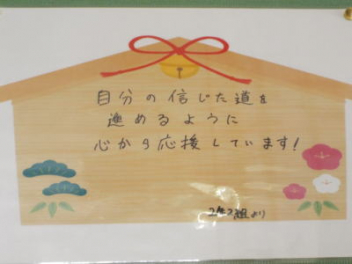 自分の信じた道を
進めるように
心から応援しています!
2年2組より